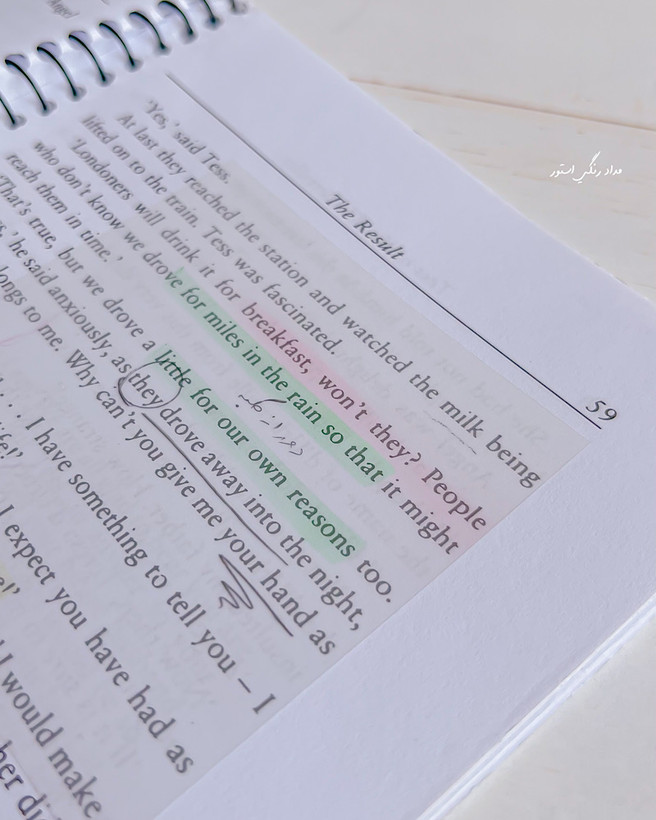 Angel
The Result 59
'Yes,' said Tess.
At last they reached the station and watched the milk being
lifted on to the train. Tess was fascinated.
'Londoners will drink it for breakfast, won't they? People
who don't know we drove for miles in the rain so that it might
reach them in time.'
'That's true, but we drove a little for our own reasons too.
he said anxiously, as they drove away into the night,
longs to me. Why can't you give me your hand as
I have something to tell you – I
life!'
I expect you have had as
I would make
her
مداد رنگی استور